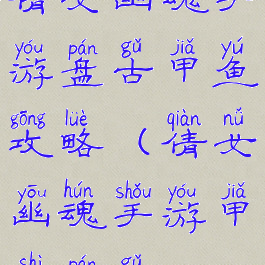 倩女幽魂手
yóu pán gǔ jiǎ yú
游盘古甲鱼
gōng lüè qiàn nǚ
攻略（倩女
yōu hún shǒu yóu jiǎ
幽魂手游甲
shì pán gǔ